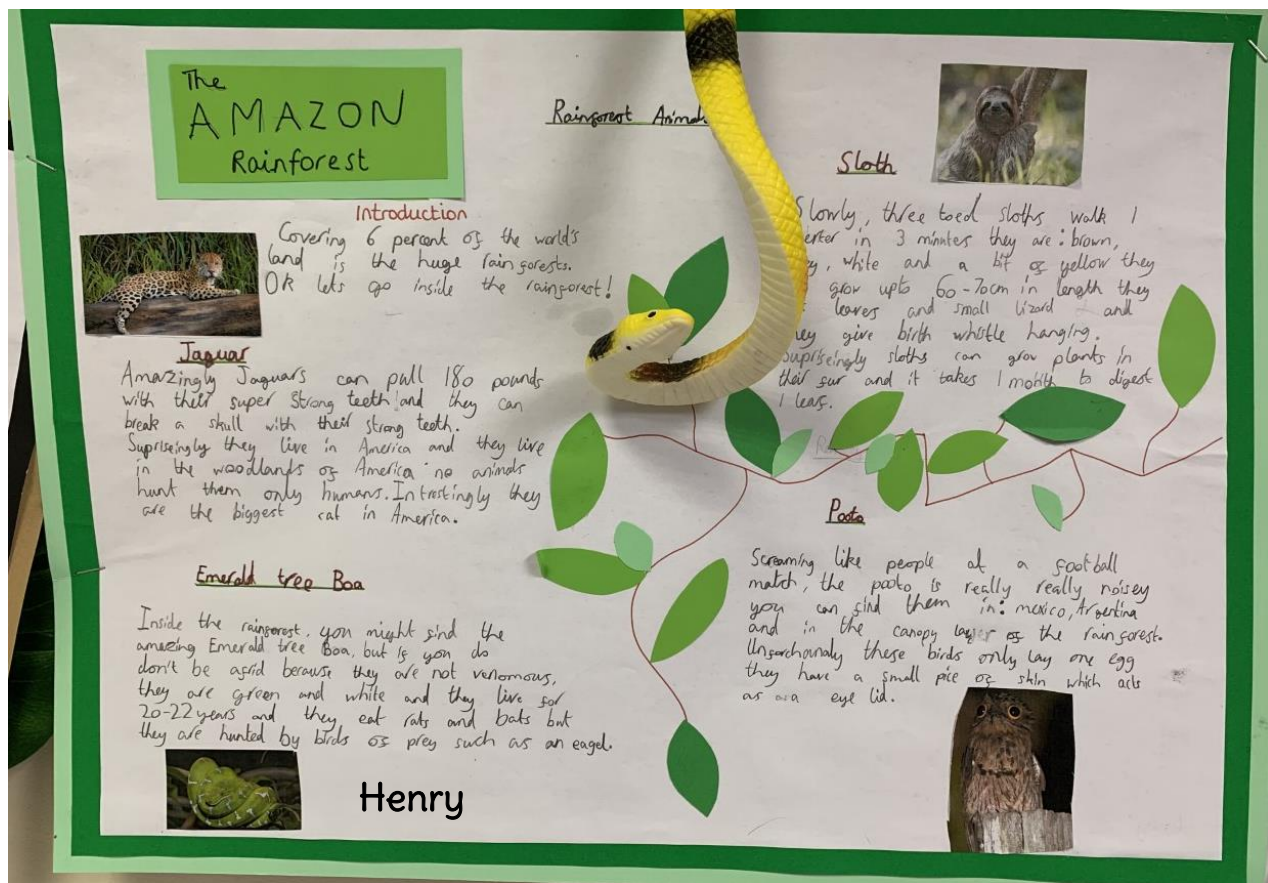 The
AMAZON
Rainforest
Rainforest Animal
Introduction
Covering 6 percent of the world's
land is the huge rainforests.
OK lets go inside the rainforest!
Jaguar
Amazingly Jaguars can pull 180 pounds
with their super strong teeth and they can
break a skull with their strong teeth.
Supriseingly they live in America and they live
in the woodlands of America no animals
hunt them only humans. Intrestingly they
are the biggest cat in America.
Emerald tree Boa
Inside the rainforest, you might find the
amazing Emerald tree Boa, but if you do
don't be afrid because they are not venomous,
they are green and white and they live for
20-22 years and they eat rats and bats but
they are hunted by birds of prey such as an eagel.
Henry
Sloth
Slowly, three toed sloths walk 1
in 3 minutes they are: brown,
, white and a bit of yellow they
grow upto 60-70cm in length they
leaves and small lizard and
they give birth whistle hanging.
Supriseingly sloths can grow plants in
their fur and it takes 1 month to digest
1 leaf.
Pooto
Screaming like people at a football
match, the pooto is really really noisey
you can find them in: mexico, Argentina
and in the canopy layer of the rainforest.
Unforchunaly these birds only lay one egg
they have a small pice of skin which acts
as a eye lid.